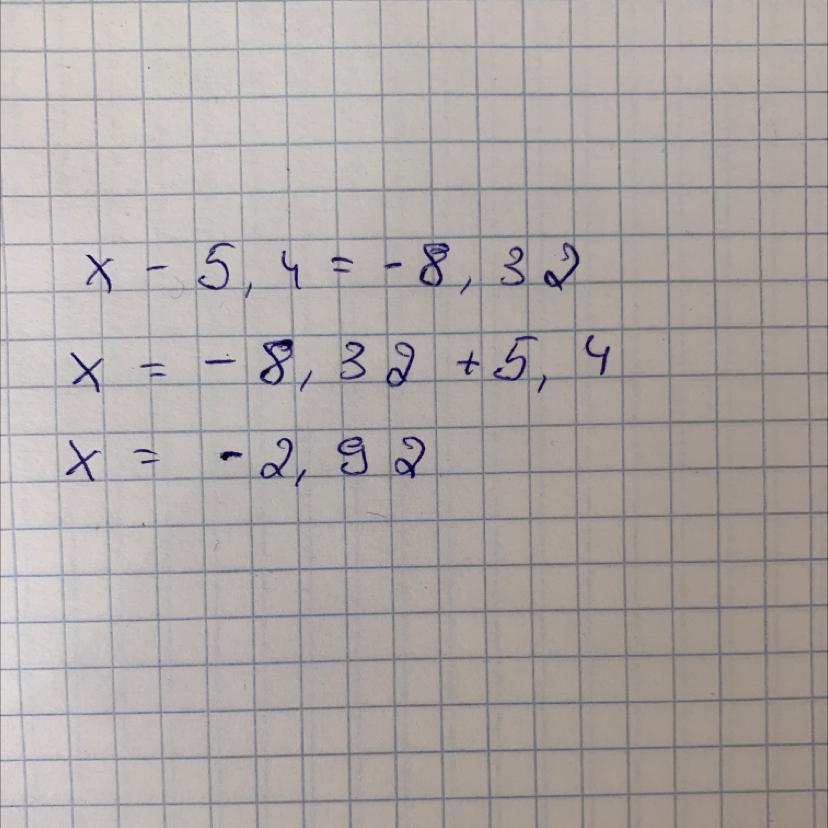 x - 5,4 = -8,32
x = -8,32 + 5,4
x = -2,92